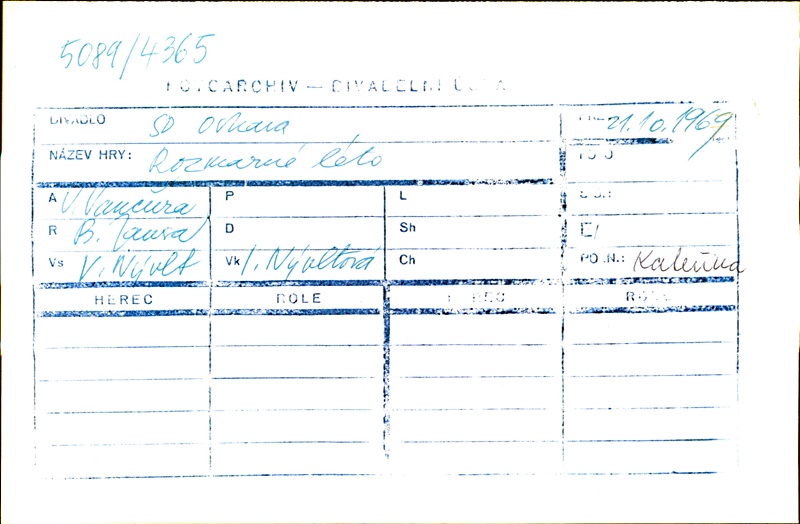 5089/4365
FOTOARCHIV — DIVADELNÍ
DIVADLO SD Ostrava 21.10.1969
NÁZEV HRY: Rozmarné léto
A V. Vančura P L
R B. D Sh
Vs V. Nývlt Vk I. Nývltová Ch POZN.: Kateřina
HEREC ROLE HEREC ROLE